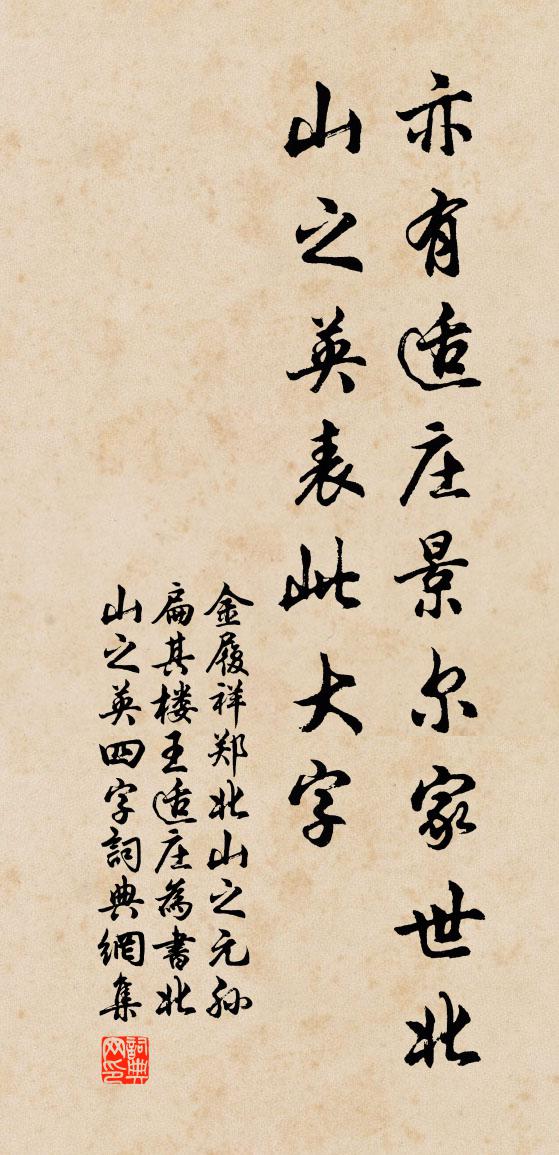 亦有适庄景尔家世北
山之英表此大字
金履祥郑北山之元孙
扁其楼王适庄為書北
山之英四字詞典網集
詞典
网印